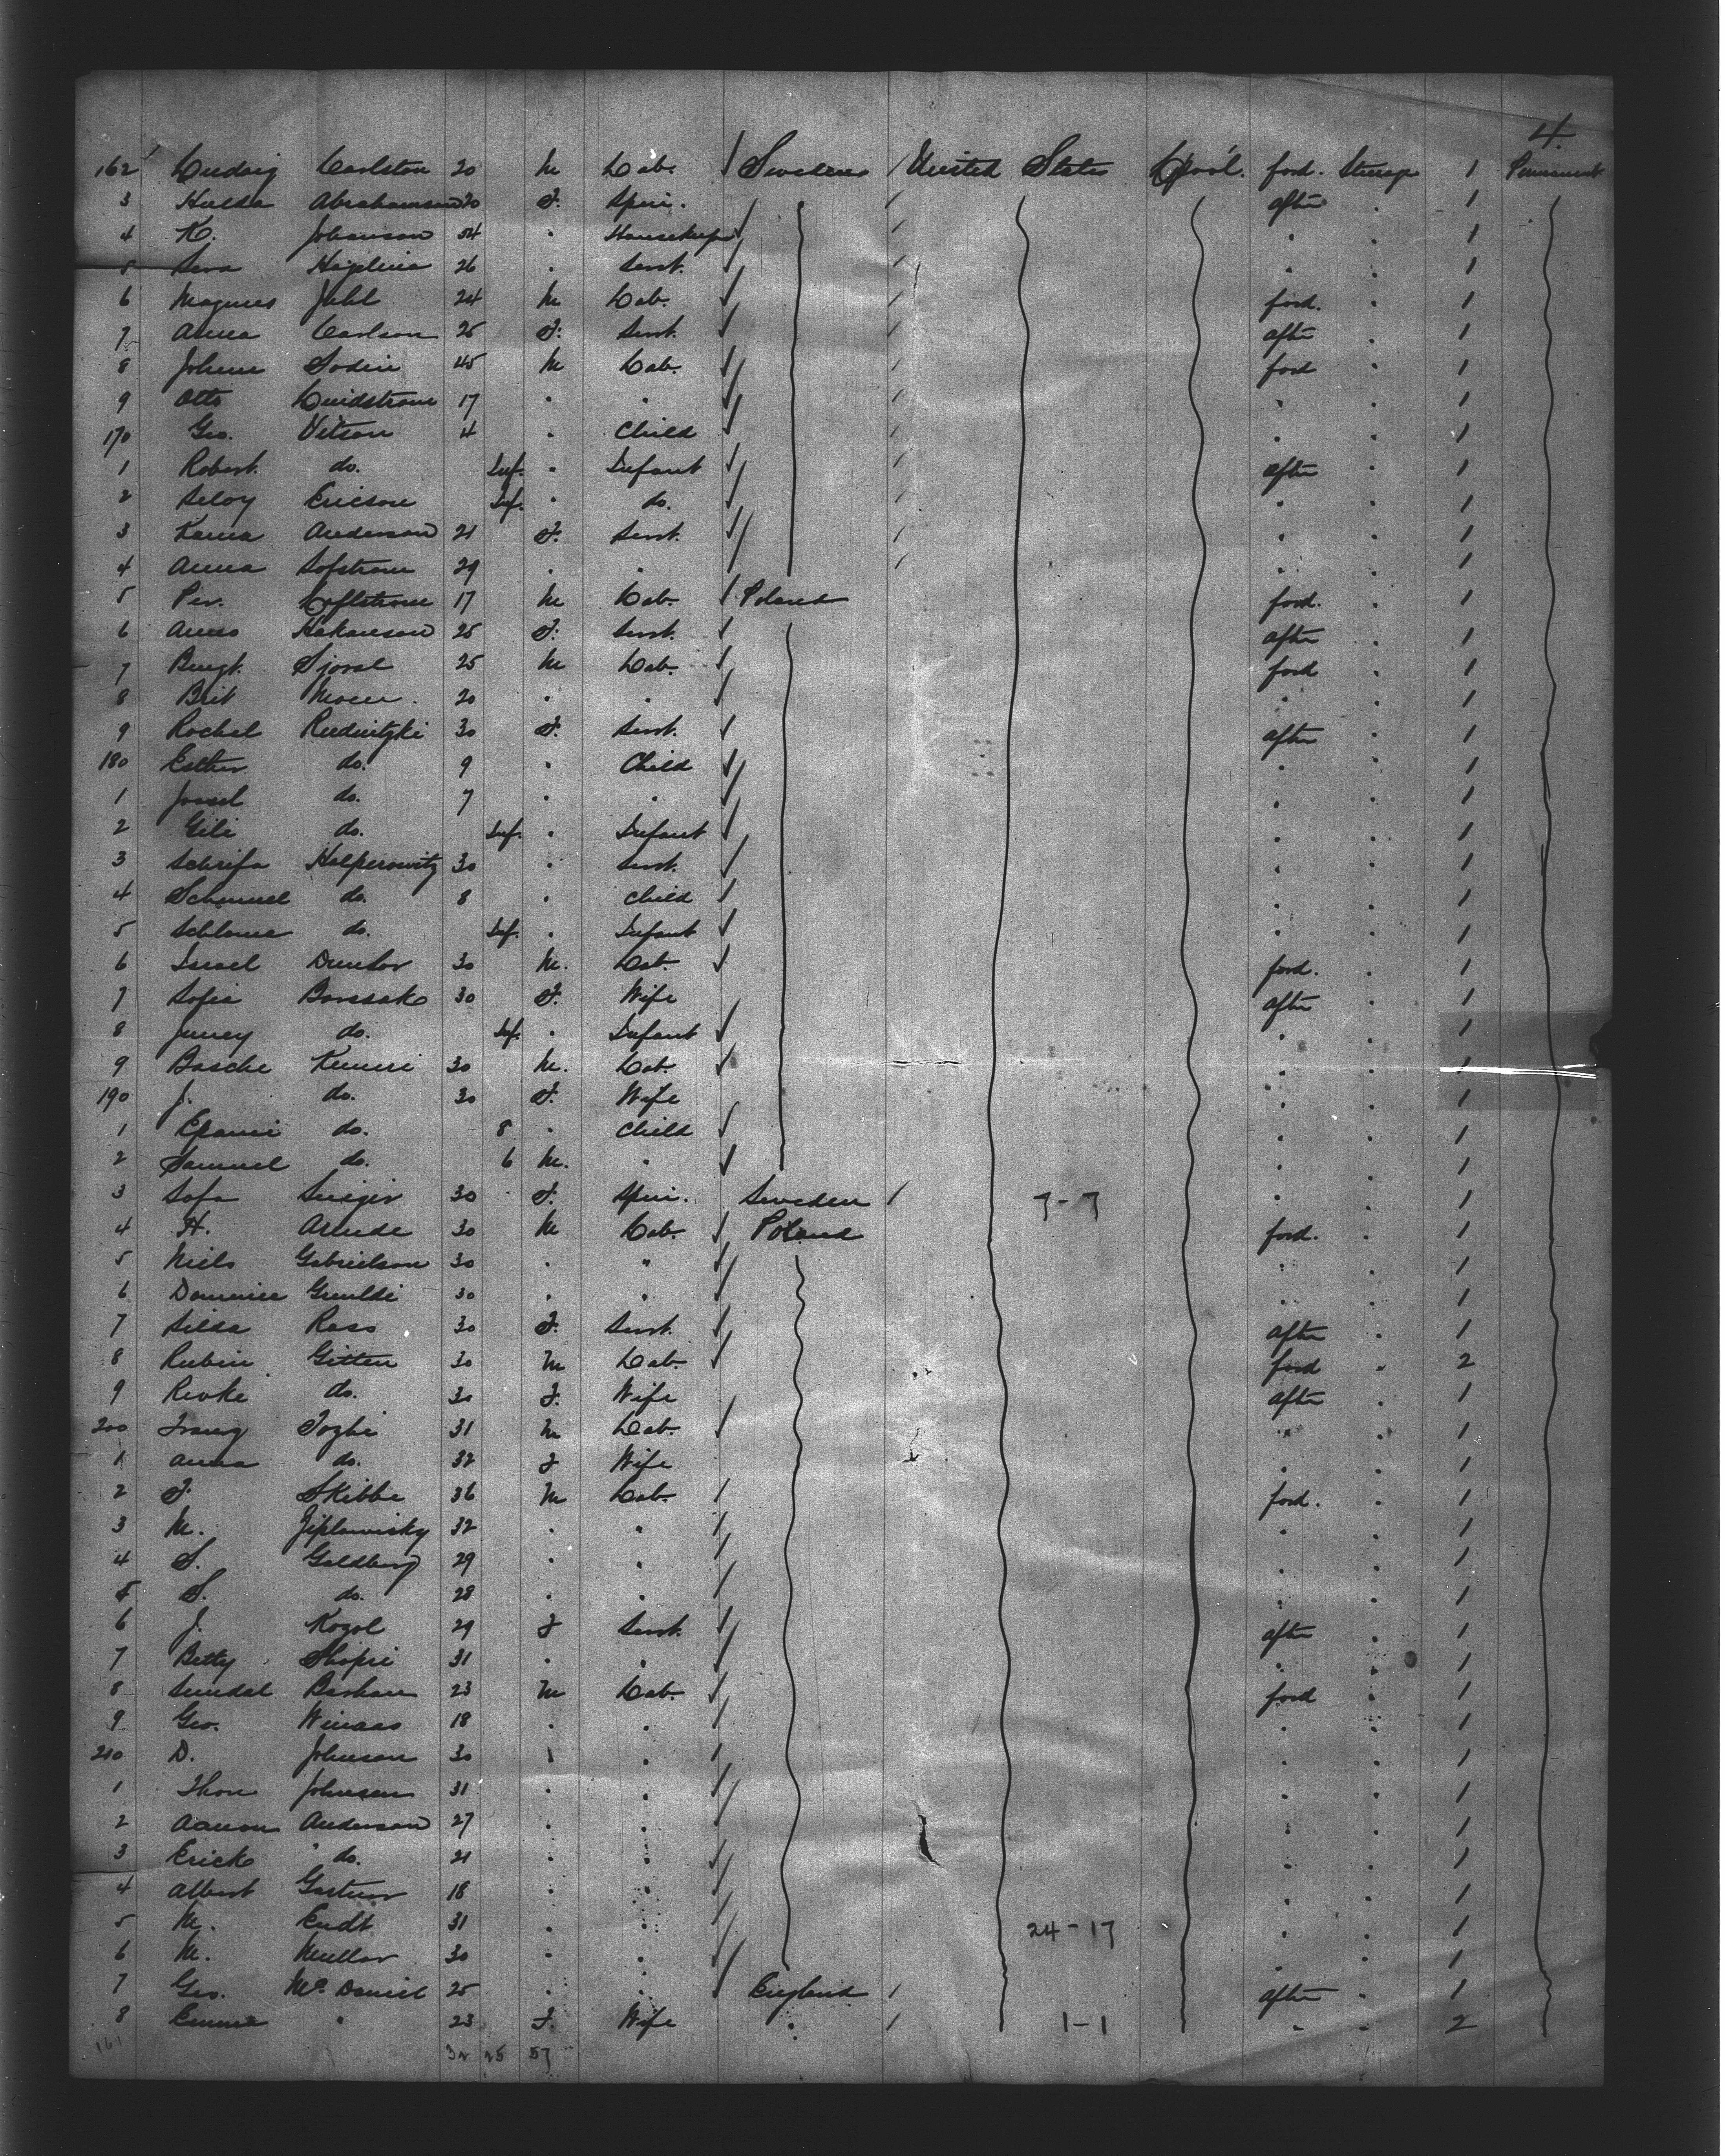 4.
162 Ludvig Carlston 20 M Lab. / Sweden / United States L'pool. ford. Steerage 1 Permanent
3 Hulda Abrahamson 20 F. Spin. / after " 1
4 K. Johanson 54 " Housekeeper / " " 1
5 Sara 26 " Servt. / " " 1
6 Magnus Juhl 24 M Lab. / ford. " 1
7 Anna Carlson 25 F. Servt. / after " 1
8 Johan Sodin 45 M Lab. / ford " 1
9 Otto Lindstrom 17 " " / " " 1
170 Geo. Vitson 4 " Child / " " 1
1 Robert do. Inf. " Infant / after " 1
2 Ericson Inf. " do. / " " 1
3 Karna Anderson 21 F. Servt. / " " 1
4 Anna Lofstrom 29 " " / " " 1
5 Per. Loflstrom 17 M Lab. / Poland ford. " 1
6 Anna Hakanson 25 F. Servt. after " 1
7 Bengt. 25 M Lab. ford " 1
8 Brit 20 " " " " 1
9 Rochel Rudnitzki 30 F. Servt. after " 1
180 Esther do. 9 " Child " " 1
1 Jossel do. 7 " " " " 1
2 Gili do. Inf. " Infant " " 1
3 Schrifa Halperowitz 30 " Servt. " " 1
4 Schmuel do. 8 " Child " " 1
5 Schlome do. Inf. " Infant " " 1
6 Israel 30 M. Lab. ford. " 1
7 Sofia Borssak 30 F. Wife after " 1
8 do. Inf. " Infant " " 1
9 Basche 30 M. Lab. " " 1
190 J. do. 30 F. Wife " " 1
1 do. 8 " Child " " 1
2 Samuel do. 6 M. " " " 1
3 Sofa 30 F. Spin. Sweden / 7-7 " " 1
4 H. 30 M Lab. Poland ford. " 1
5 Niels Gabrielson 30 " " " " 1
6 30 " " " " 1
7 Silda Rass 30 F. Servt. after " 1
8 Rubin Gitten 30 M Lab. ford " 2
9 Rivke do. 30 F. Wife after " 1
200 Franz 31 M Lab. " " 1
1 Anna do. 32 F Wife " " 1
2 F. Skibbe 36 M Lab. ford. " 1
3 M. 32 " " " " 1
4 S. Goldberg 29 " " " " 1
5 S. do. 28 " " " " 1
6 J. Kozol 29 F Servt. after " 1
7 Betty 31 " " " " 1
8 23 M Lab. ford " 1
9 Geo. 18 " " " " 1
210 D. Johnson 30 " " " " 1
1 Thon Johnsen 31 " " " " 1
2 Aanon Anderson 27 " " " " 1
3 Erick do. 21 " " " " 1
4 Albert 18 " " " " 1
5 M. Endt 31 " " 24-17 " " 1
6 M. Muller 30 " " " " 1
7 Geo. McDaniel 25 " " / England / after " 1
8 Emma " 23 F. Wife " / 1-1 " " 2
161 32 25 57